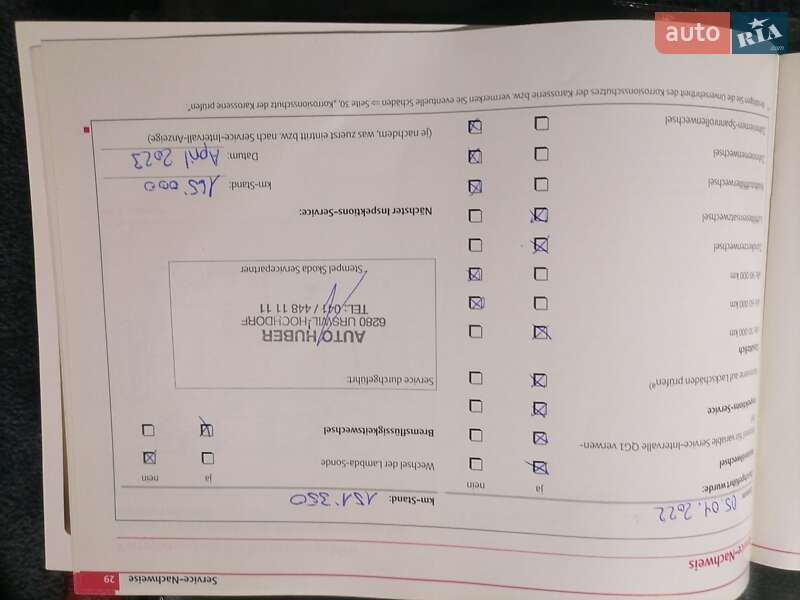 auto RIA .com
Service-Nachweise 29
Service-Nachweis
05.04.2022
ja nein
Öl für variable Service-Intervalle QG1 verwen-
ab 30 000 km
ab 60 000 km
ab 90 000 km
Zündkerzenwechsel
Luftfiltereinsatzwechsel
Zahnriemenwechsel
Zahnriemen-Spannrollenwechsel
km-Stand: 151'350
ja nein
Wechsel der Lambda-Sonde
Bremsflüssigkeitswechsel
Service durchgeführt:
AUTO HUBER
6280 URSWIL-HOCHDORF
TEL: 041 / 448 11 11
Stempel Skoda Servicepartner
Nächster Inspektions-Service:
km-Stand: 165'000
Datum: April 2023
(je nachdem, was zuerst eintritt bzw. nach Service-Intervall-Anzeige)
bzw. vermerken Sie eventuelle Schäden ⇒ Seite 30, „Korrosionsschutz der Karosserie prüfen“